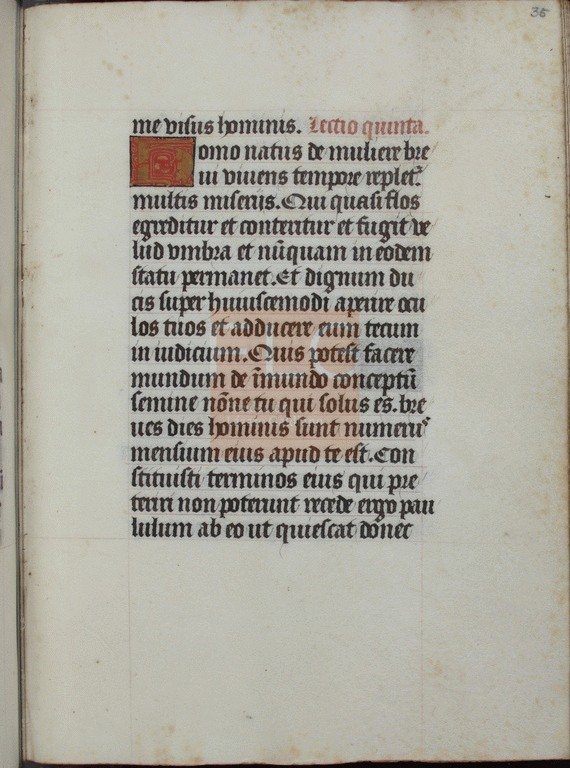 35
me visus hominis. Lectio quinta.
Homo natus de muliere bre
ui viuens tempore replet᷒
multis miserijs. Qui quasi flos
egreditur et conteritur et fugit ve
lud vmbra et nūquam in eodem
statu permanet. Et dignum du
cis super huiuscemodi aperire ocu
los tuos et adducere eum tecum
in iudicium. Quis potest facere
mundum de īmundo conceptū
semine nōne tu qui solus es. bre
ues dies hominis sunt numerus
mensium eius apud te est. Con
stituisti terminos eius qui pre
teriri non poterunt recede ergo pau
lulum ab eo ut quiescat donec